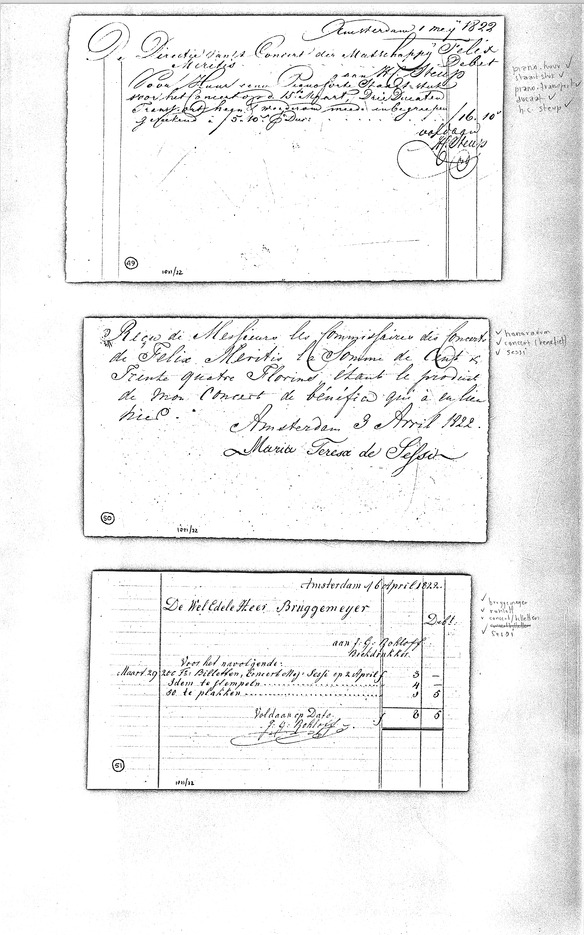 Amsterdam 1 meij 1822
De Directie van het Concert der Maatschappij Felix
Meritis Debet
aan H.C. Steup
Voor Huur eener Pianoforte
voor het Concert op d 15 Maart, Drie Ducaten
Transport heen & wederom mede inbegreepen
gerekend à f 5.10 f 16.10
voldaan
HC Steup
49
1011/22
piano, huur ✓
piano, transport ✓
ducaat ✓
h.c. steup ✓
Reçu de Messieurs les Commissaires des Concerts
de Felix Meritis la Somme de Cent &
Trente quatre Florins, étant le produit
de mon Concert de bénéfice qui a eu lieu
hier.
Amsterdam 3 Avril 1822.
Maria Teresa de Sessi
50
1011/22
✓ honorarium
✓ concert (benefiet)
✓ sessi
Amsterdam 16 April 1822.
De WelEdele Heer Bruggemeyer
Debt.
aan J: G: Rohloff
Boekdrukker.
Voor het navolgende:
Maart 29 200 Fr: Billetten, Concert Mej: Sessi op 2 April f 3 —
Idem te stempelen 4
50 te plakken 5
Voldaan op Dato f 8 5
J: G: Rohloff
51
1011/22
✓ bruggemeyer
✓ rohloff
✓ concert/billetten
✓ sessi